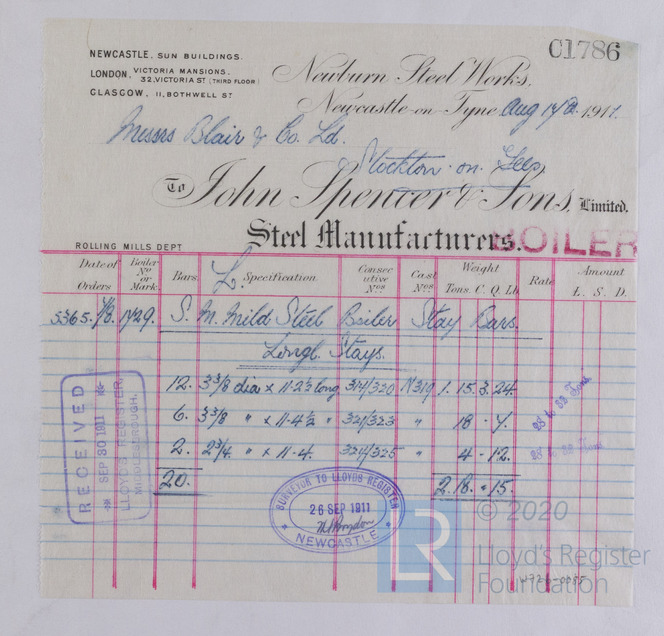 C1786
NEWCASTLE, SUN BUILDINGS.
LONDON, VICTORIA MANSIONS,
32, VICTORIA ST (THIRD FLOOR)
GLASGOW, 11, BOTHWELL ST
Newburn Steel Works,
Newcastle-on-Tyne Aug 1911.
Messrs Blair & Co. Ld.
Stockton-on-Tees
To John Spencer & Sons, Limited.
Steel Manufacturers.
BOILER
ROLLING MILLS DEPT
Date of Orders Boiler No or Mark. Bars. Specification Consecutive Nos Cast Nos Weight Tons. C. Q. Lb Rate Amount £. S. D.
L
5365. 1/8. 1729. S. M. Mild Steel Boiler Stay Bars.
Longl. Stays.
12. 3 3/8 dia x 11-2 1/2 long 314/320 N319 1. 15. 3. 24.
6. 3 3/8 " x 11-4 1/2 " 321/323 " 18 - 7.
2. 2 3/4 " x 11-4. 324/325 " 4 - 12.
20. 2. 18. - 15.
28 to 32 Tons
28 to 32 Tons
RECEIVED
SEP 30 1911
LLOYD'S REGISTER,
MIDDLESBROUGH.
SURVEYOR TO LLOYDS REGISTER
26 SEP 1911
NEWCASTLE
LR
© 2020
Lloyd's Register
Foundation